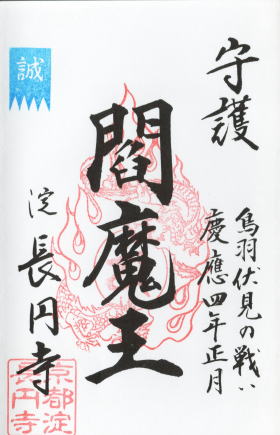 守護
鳥羽伏見の戦い
慶應四年正月
閻魔王
誠
淀 長円寺
京都淀
長円寺